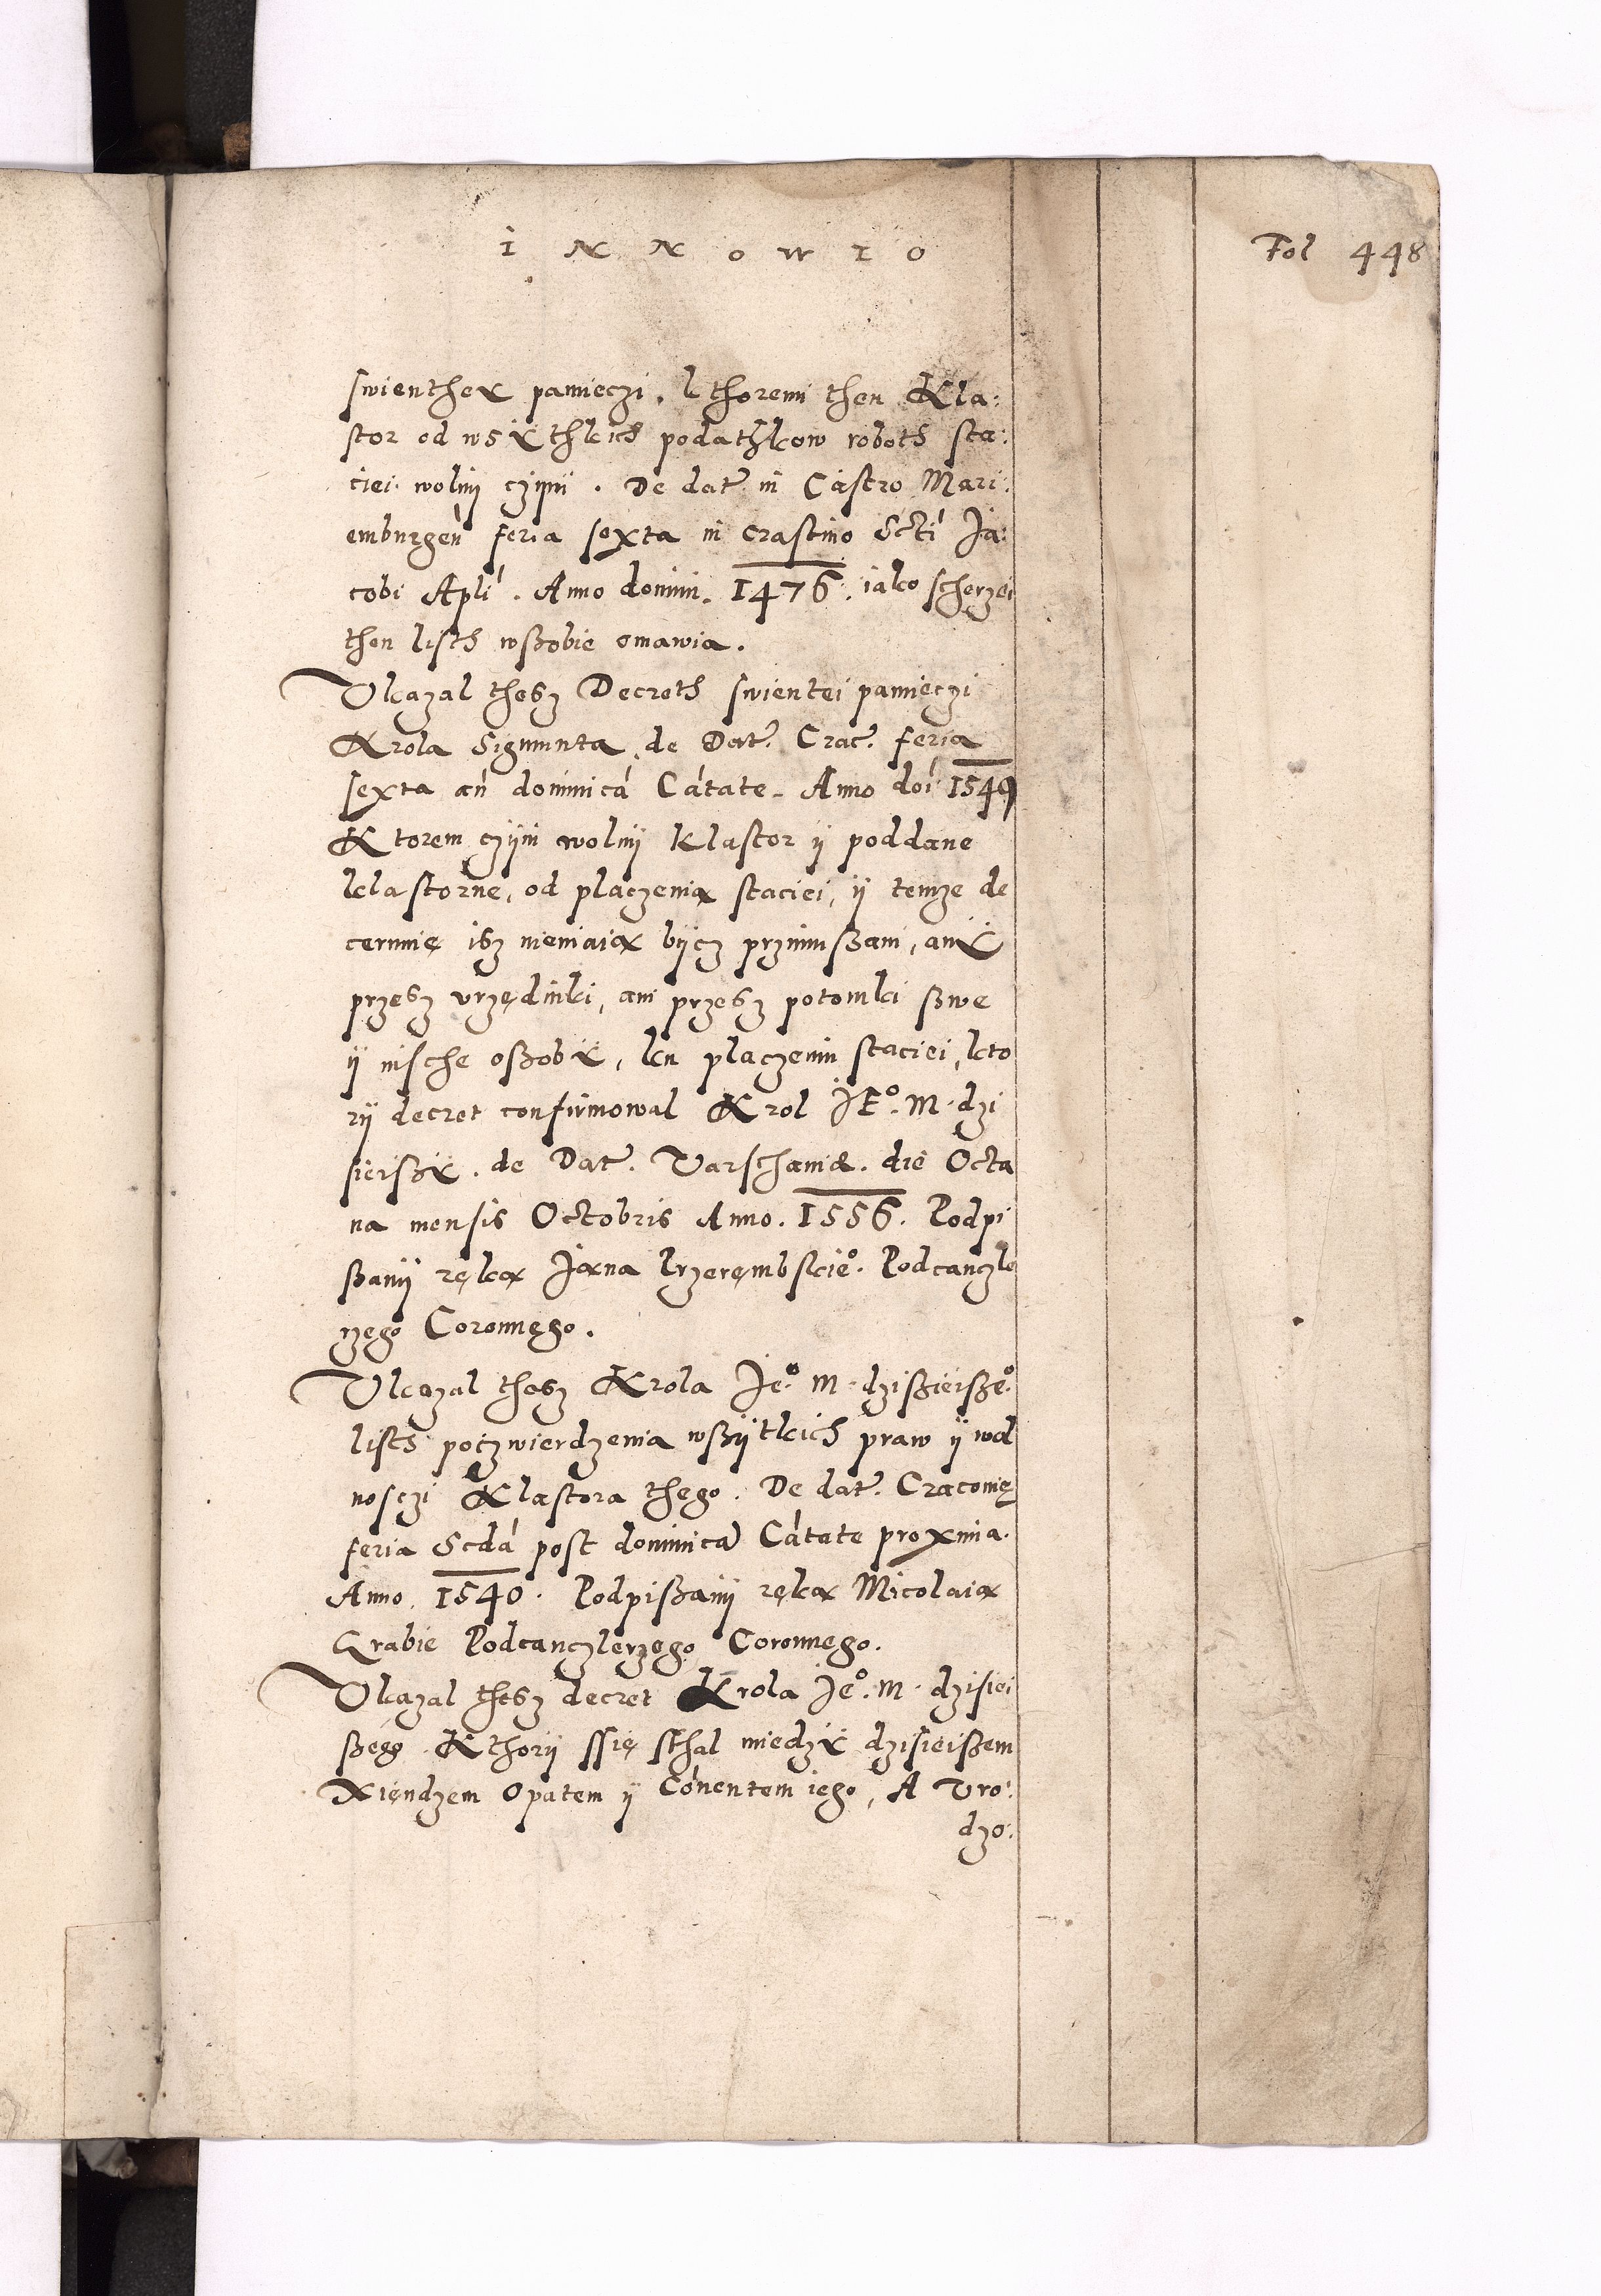 I N N O W L O
Fol 448
swienthex pamieczi. kthoremi then Kla:
stor od wsẍthkich podathkow roboth sta:
ciei wolnij czijni. De dat. in Castro Mari:
emburgeń feria sexta in crastino Scti Ja:
cobi Apli. Anno domini. 1476. iako scherzei
then listh wßobie omawia.
Ukazal thesz Decreth swientei pamieczi
Krola Sigmunta de Dat. Crac. feria
sexta añ dominicá Cátate. Anno doi 1549
Ktorem czijni wolnij Klastor ij poddane
klastorne, od placzenia staciei, ij temze de
cernuię isz niemaiæ bijcz przimußani, anẍ
przesz vrzędniki, ani przesz potomki ßwe
ij insche oßobẍ, ku placzeniu staciei, kto
rij decret confirmowal Krol JE°. M. dzi
sieißẍ. de Dat. Varschauiæ. die Octa
ua mensis Octobris Anno. 1556. Podpi
ßanij ręką Jana Przerębskie°. Podcanczle
rzego Coronnego.
Ukazal thesz Krola Je°. M. dzißieiße°.
listh poczwierdzenia wßijtkich praw ij wol
nosczi Klastora thego. De dat. Cracouię
feria Scdá post dominicá Cátate proxima.
Anno. 1540. Podpißanij ręką Micolaia
Grabie Podcanczlerzego Coronnego.
Ukazal thesz decret Krola Je°. M. dzisiei
ßego. Kthorij ssię sthal miedzẍ dzisieißem
Xiendzem Opatem ij Cóuentem iego, A Vro:
dzo: